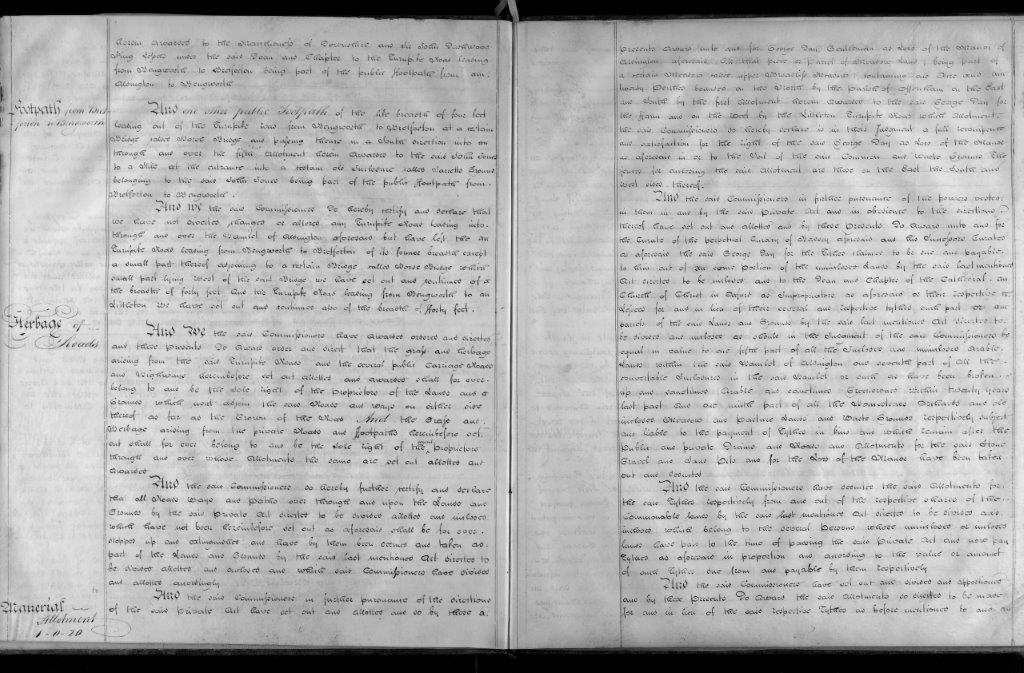 herein awarded to the Marchioness of Downshire and Sir John Dashwood
King Lessees under the said Dean and Chapter to the Turnpike Road leading
from Bengworth to Bretforton being part of the public Footpath from
Aldington to Bengworth
Footpath from Bret
forton to Bengworth
And one other public Footpath of the like breadth of four feet
leading out of the Turnpike Road from Bengworth to Bretforton at a certain
Bridge called Horse Bridge and passing thence in a South direction into on
through and over the fifth Allotment herein awarded to the said John Jones
to a Stile at the entrance into a certain old Inclosure called Ground
belonging to the said John Jones being part of the public Footpath from
Bretforton to Bengworth.
And We the said Commissioners Do hereby certify and declare that
we have not diverted changed or altered any Turnpike Road leading into
through and over the Hamlet of Aldington aforesaid but have left the
Turnpike Road leading from Bengworth to Bretforton of its former breadth except
a small part thereof adjoining to a certain Bridge called Horse Bridge which
small part lying West of the said Bridge we have set out and continued of
the breadth of forty feet And the Turnpike Road leading from Bengworth to
Littleton We have set out and continued also of the breadth of forty feet.
Herbage of
Roads
And We the said Commissioners have awarded ordered and directed
and these Presents Do award order and direct that the grass and herbage
arising from the said Turnpike Roads and the several public Carriage Roads
and Highways hereinbefore set out allotted and awarded shall for ever
belong to and be the sole right of the Proprietors of the Lands and
Grounds which next adjoin the said Roads and Ways on either side
thereof as far as the Crown of the Road And the Grass and
Herbage arising from the private Roads and Footpaths hereinbefore set
out shall for ever belong to and be the sole right of the Proprietors
through and over whose Allotments the same are set out allotted and
awarded
And the said Commissioners do hereby further certify and declare
that all Roads Ways and Paths over through and upon the Lands and
Grounds by the said Private Act directed to be divided allotted and inclosed
which have not been hereinbefore set out as aforesaid shall be for ever
stopped up and extinguished and have by them been deemed and taken as
part of the Lands and Grounds by the said last mentioned Act directed to
be divided allotted and inclosed and which said Commissioners have divided
and allotted accordingly
Manerial
Allotment
1-0-20
And the said Commissioners in further pursuance of the directions
of the said Private Act have set out and allotted and do by these
presents Award unto and for George Day Gentleman as Lord of the Manor of
Aldington aforesaid All that piece or Parcel of Meadow Land being part of
a certain Meadow called upper Meadow containing one Acre and
twenty Perches bounded on the North by the Parish of Offenham on the East
and South by the first Allotment herein awarded to the said George Day for
the Farm and on the West by the Littleton Turnpike Road which Allotment
the said Commissioners do hereby declare is in their Judgment a full recompense
and satisfaction for the right of the said George Day as Lord of the Manor
as aforesaid in or to the Soil of the said Commons and Waste Grounds The
fences for inclosing the said Allotment are those on the East the South and
West sides thereof.
And the said Commissioners in further pursuance of the powers vested
in them in and by the said Private Act and in obedience to the directions
thereof have set out and allotted and by these Presents Do Award unto and for
the Curate of the perpetual Curacy of Badsey aforesaid and his Successors Curates
as aforesaid the said George Day for the Tithes claimed to be due and payable
to him out of some portion of the uninclosed Lands by the said last mentioned
Act directed to be inclosed and to the Dean and Chapter of the Cathedral
Church of Christ in Oxford as Impropriators as aforesaid or their respective
Lessees for and in lieu of their several and respective tythes such part or
parcels of the said Lands and Grounds by the said last mentioned Act directed to
be divided and inclosed as should in the Judgment of the said Commissioners be
equal in value to one fifth part of all the Inclosed and uninclosed Arable
Lands within the said Hamlet of Aldington one seventh part of all the
convertible Inclosures in the said Hamlet or such as have been broken
up and sometimes Arable and sometimes Greensward within twenty years
last past And one ninth part of all the Homesteads Orchards and old
inclosed Meadow and Pasture Lands and Waste Grounds respectively subject
and liable to the payment of Tythes in kind and which remain after the
Public and private Drains and Roads and Allotments for the said Stone
Gravel and Sand Pits and for the Lord of the Manor have been taken
out and deducted
And the said Commissioners have deducted the said Allotments for
the said Tythes respectively from and out of the respective shares of the
Commonable Lands by the said last mentioned Act directed to be divided and
inclosed which belong to the several Persons whose uninclosed or inclosed
lands have paid to the time of passing the said Private Act and now pay
Tythes as aforesaid in proportion and according to the value or amount
of such Tythes due from and payable by them respectively
And the said Commissioners have set out and divided and apportioned
and by these Presents Do Award the said Allotments so directed to be made
for and in lieu of the said respective Tythes as before mentioned to and